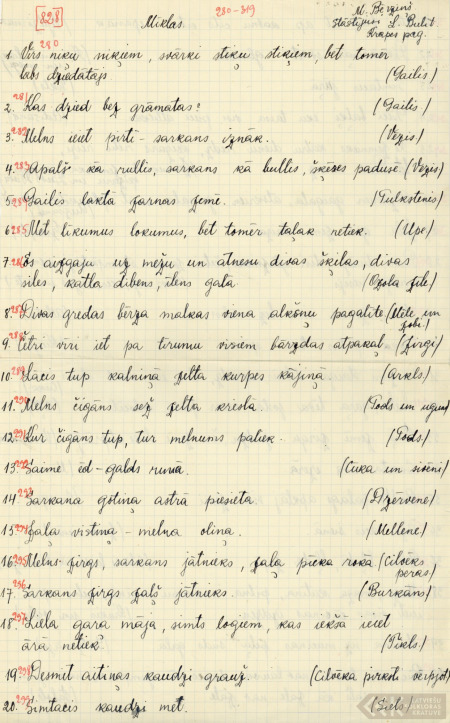 [828]
Miklas.
280-319
M. Bērziņš
stāstījusi L. Bulit
Krapes pag.
280
1. Virs niķu niķiem, svārki stiķu stiķiem, bet tomēr
labs dziedātājs (Gailis)
281
2. Kas dzied bez grāmatas? (Gailis)
282
3. Melns ieiet pirtī - sarkans iznāk. (Vēzis)
283
4. Apaļš kā rullis, sarkans kā bullis, šķēres padusē. (Vēzis)
284
5. Gailis laktā zarnas zemē. (Pulkstenis)
285
6. Met līkumus lokumus, bet tomēr taļak netiek. (Upe)
286
7. Es aizgāju uz mežu un atnesu divas šķilas, divas
siles, katla dibens, īlens galā. (Ozola zīle)
287
8. Divas gredas bērza malkas viena alkšņu pagalīte (Mēle un
zobi)
288
9. Četri vīri iet pa tīrumu visiem bārzdas atpakaļ (Zirgi)
289
10. Lācis tup kalniņā zelta kurpes kājiņā. (Arkls)
290
11. Melns čigāns sēž zelta krēslā (Pods un uguns)
291
12. Kur čigāns tup, tur melnums paliek. (Pods)
292
13. Saime ēd - galds runā. (Cūka un sivēni)
293
14. Sarkana gotiņa astrā piesieta (Dzērvene)
294
15. Zaļa vistiņa - melna oliņa. (Mellene)
295
16. Melns zirgs, sarkans jātnieks, zaļa pīcka rokā. (Cilvēks
296
17. Sarkans zirgs zaļš jātnieks (Burkāns)
297
18. Liela gara māja, simts logiem, kas iekšā ieiet
ārā netiek. (Tīkls)
298
19. Desmit aitiņas kaudzi grauž. (Cilvēka pirksti vērpjot)
299
20. Simtacis kaudzi met. (Siets)
LATVIEŠU
FOLKLORAS
KRĀTUVE